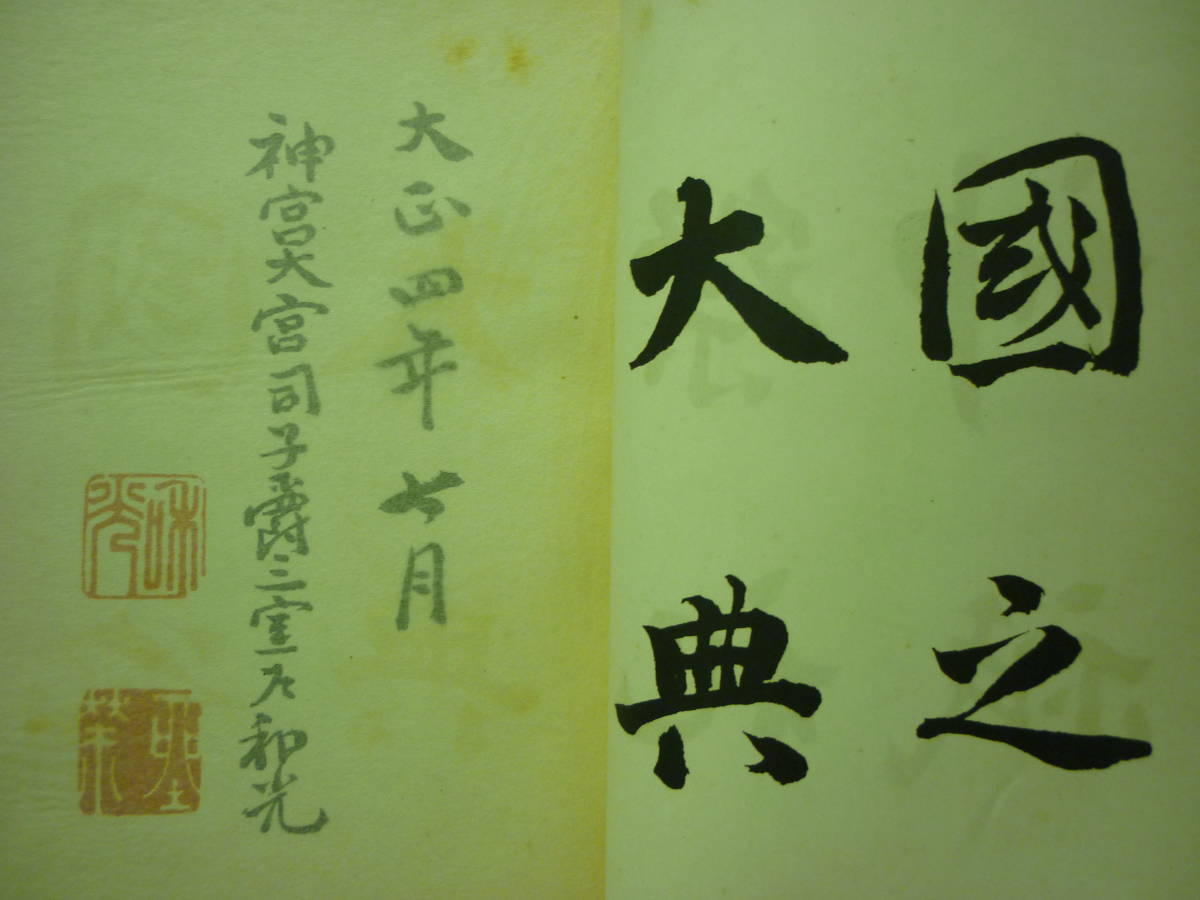 國之
大典
大正四年七月
神宮大宮司子爵三室戸和光
和光